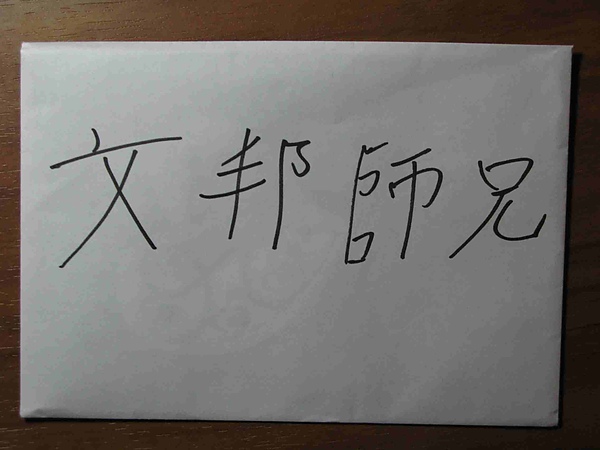 文邦師兄